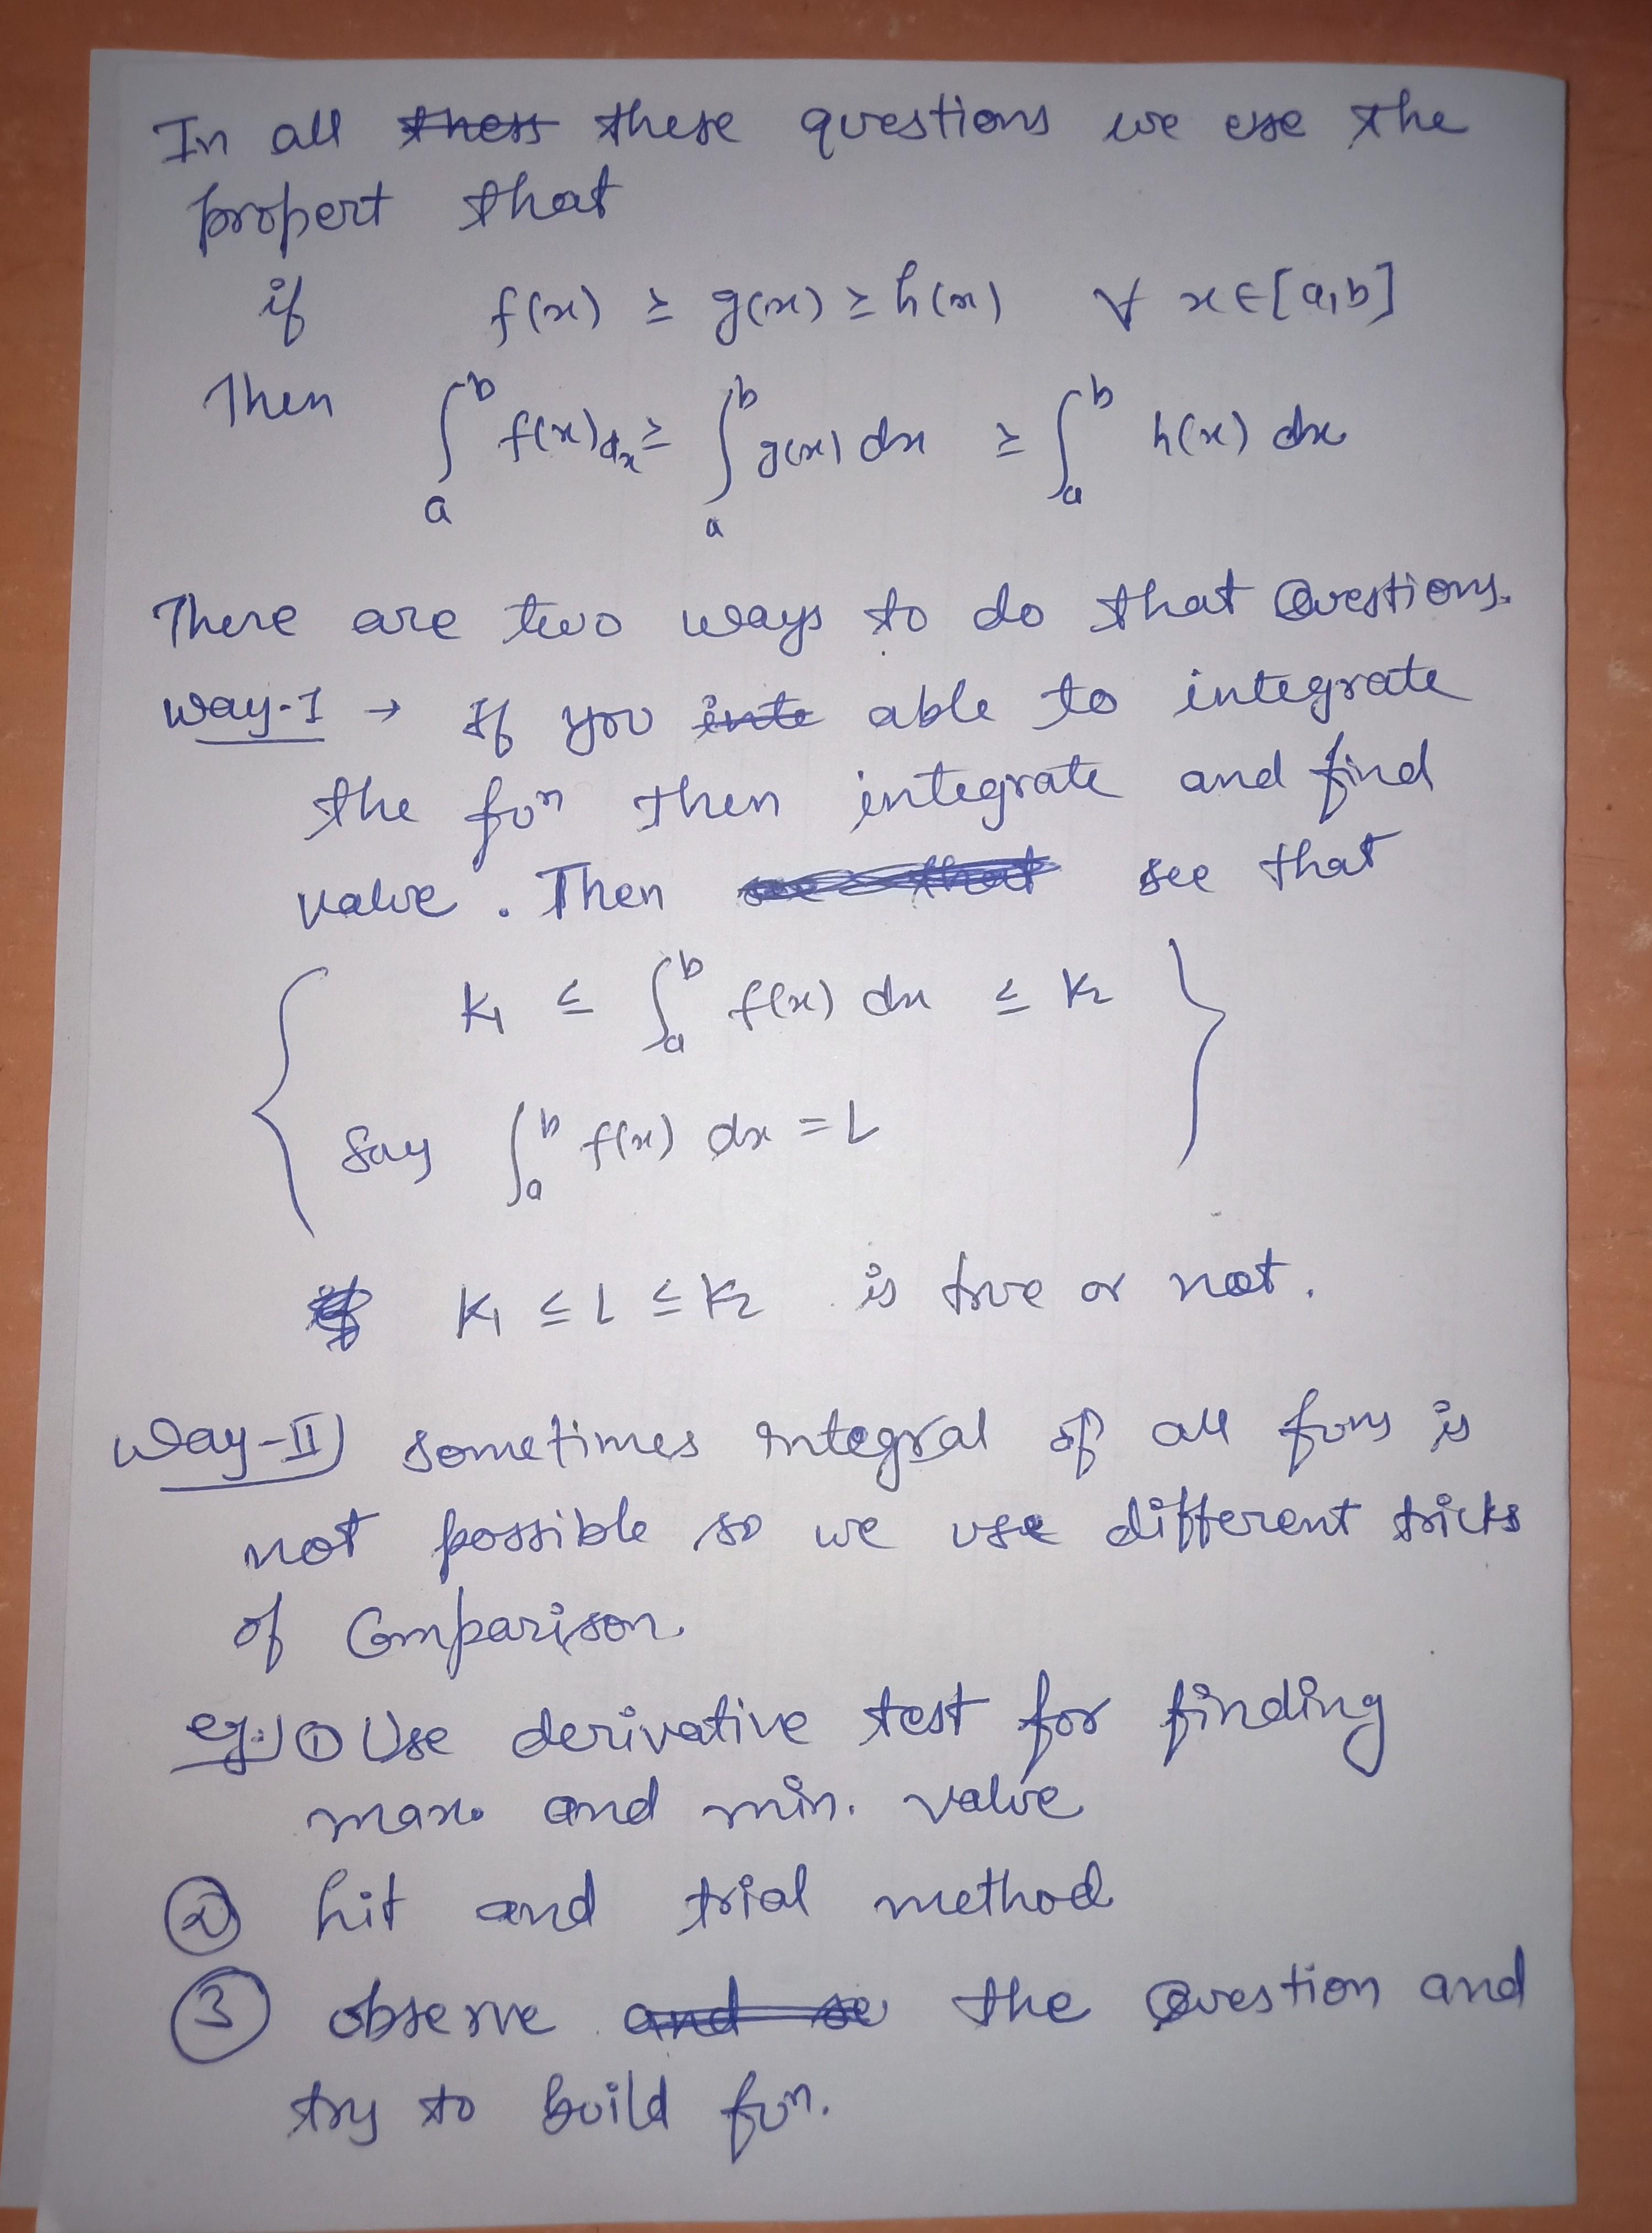 In all these questions we use the
propert that
if f(x) ≥ g(x) ≥ h(x) ∀ x ∈ [a,b]
Then ∫_a^b f(x) dx ≥ ∫_a^b g(x) dx ≥ ∫_a^b h(x) dx
There are two ways to do that Questions.
Way-I → If you able to integrate
the fun then integrate and find
value. Then see that
{ K₁ ≤ ∫_a^b f(x) dx ≤ K₂ }
Say ∫_a^b f(x) dx = L
K₁ ≤ L ≤ K₂ is true or not.
Way-II) sometimes integral of all funs is
not possible so we use different tricks
of Comparison.
eg:) ① Use derivative test for finding
max. and min. value
② hit and trial method
③ observe the Question and
try to build fun.